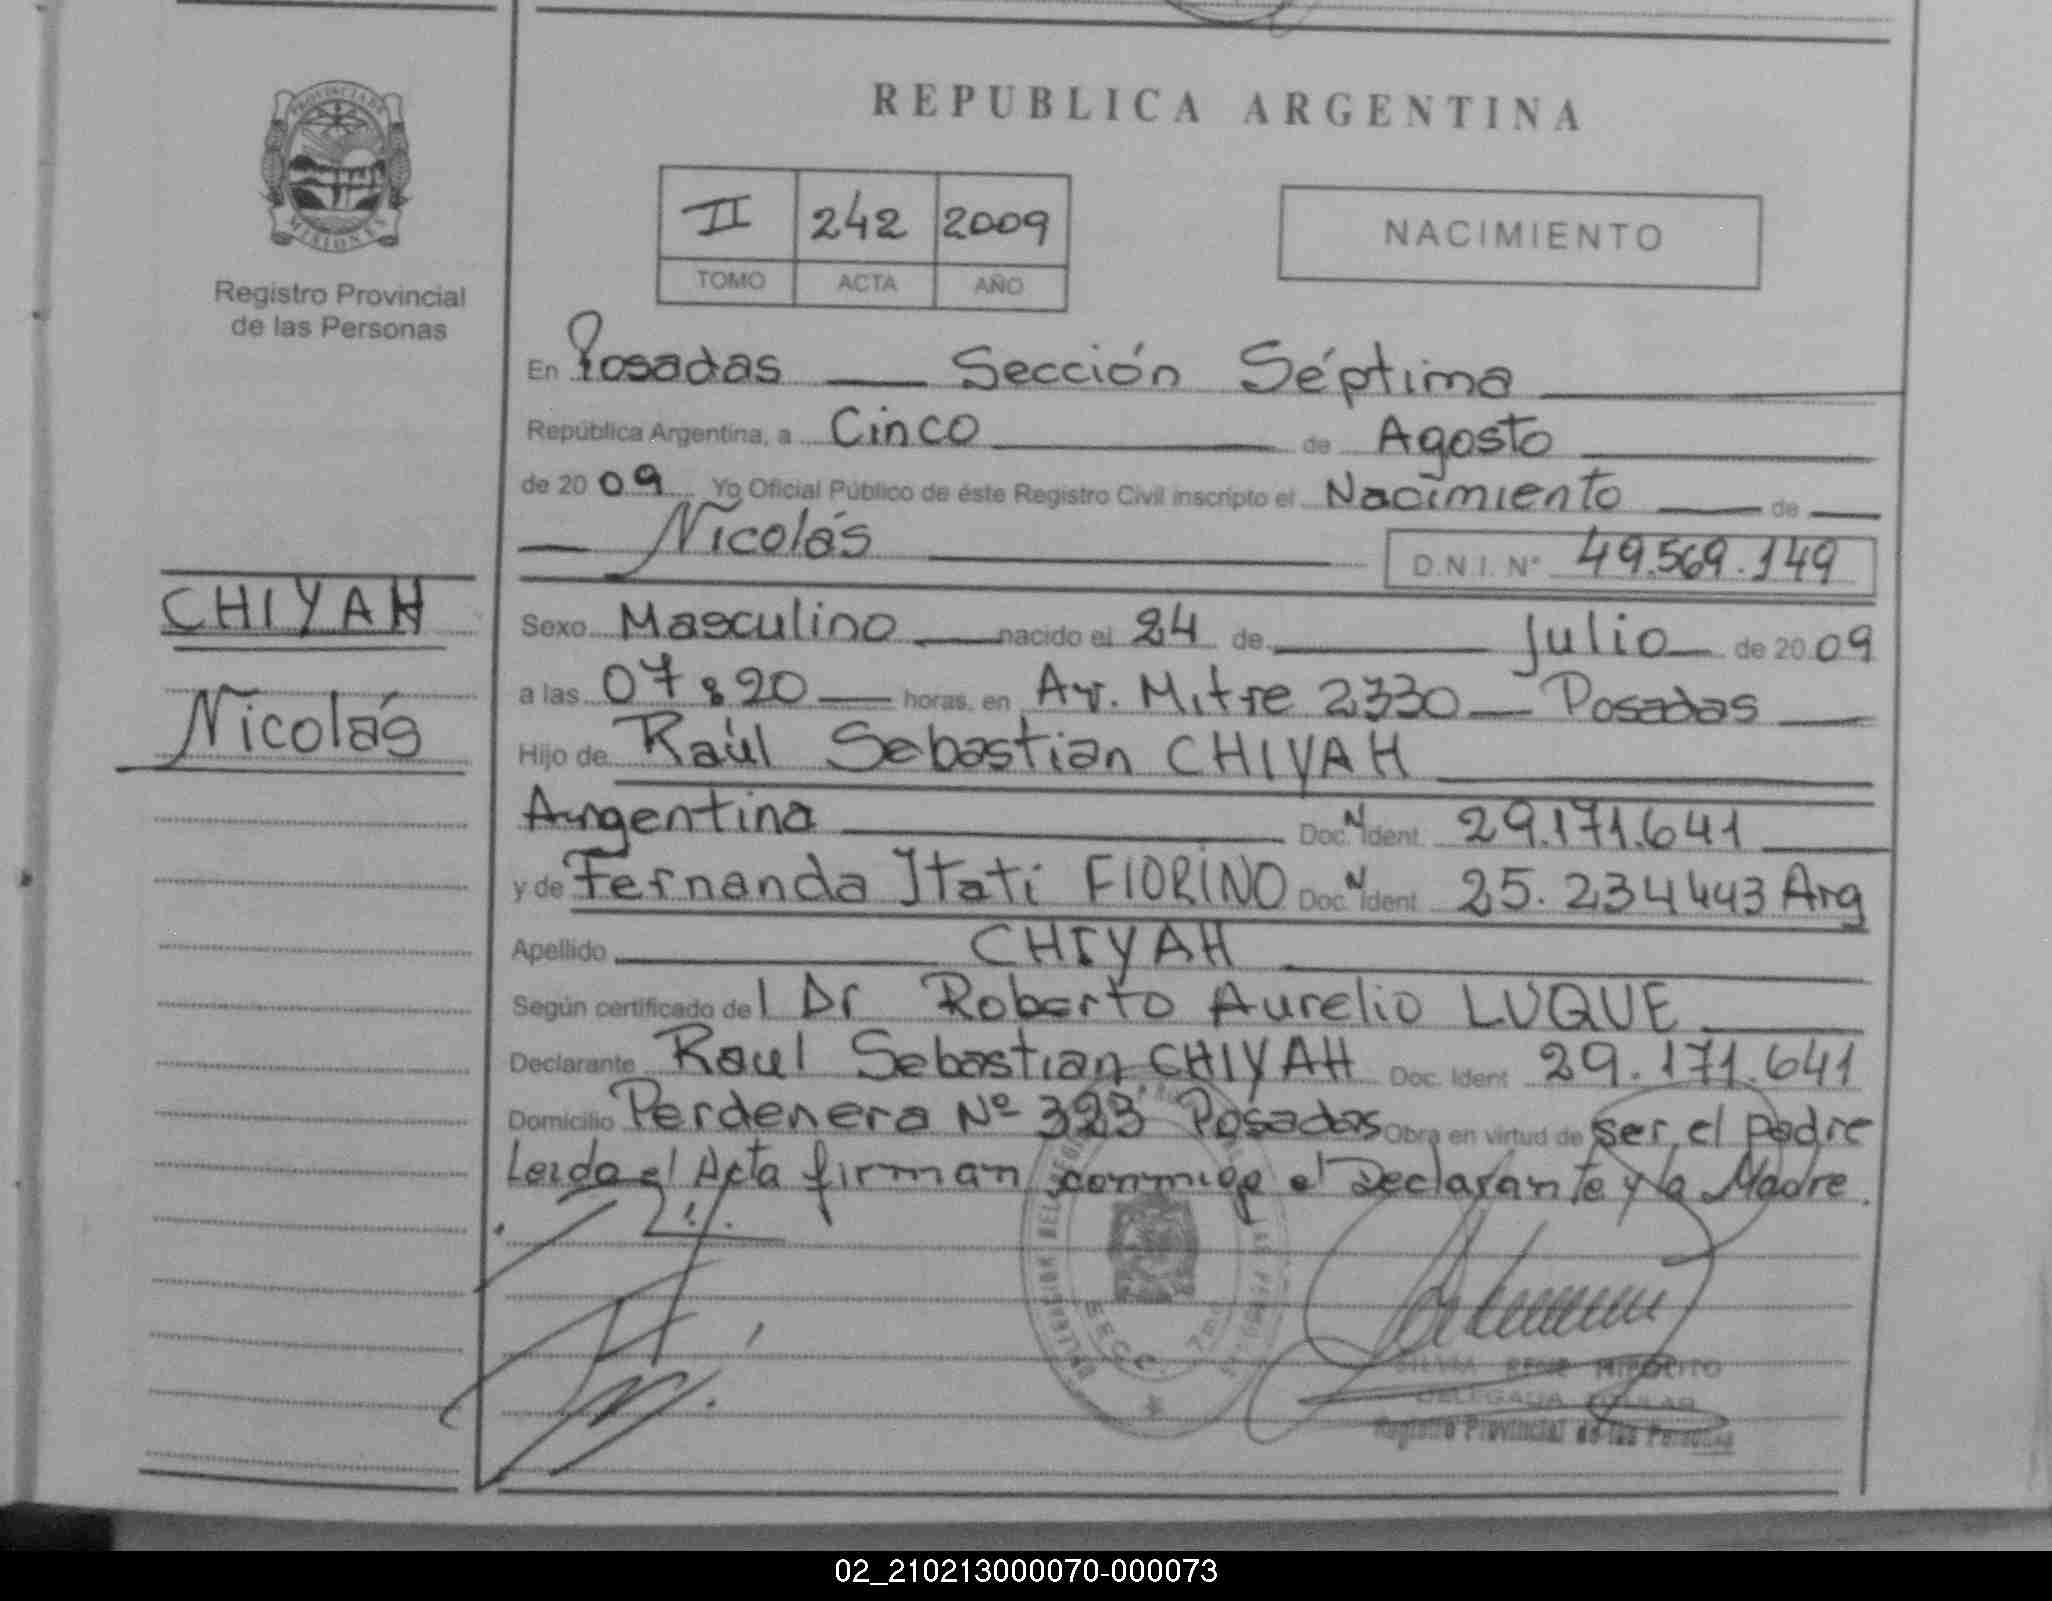 REPUBLICA ARGENTINA
PROVINCIA DE MISIONES
II 242 2009
TOMO ACTA AÑO
NACIMIENTO
Registro Provincial
de las Personas
En Posadas Sección Séptima
República Argentina, a Cinco de Agosto
de 20 09 Yo Oficial Público de éste Registro Civil inscripto el Nacimiento de
Nicolás D.N.I. N° 49.569.149
CHIYAH
Nicolás
Sexo Masculino nacido el 24 de Julio de 20 09
a las 07:20 horas. en Av. Mitre 2330 Posadas
Hijo de Raúl Sebastian CHIYAH
Argentina Doc. N Ident. 29.171.641
y de Fernanda Itati FIORINO Doc. N Ident. 25.234443 Arg
Apellido CHIYAH
Según certificado del Dr Roberto Aurelio LUQUE
Declarante Raul Sebastian CHIYAH Doc. Ident 29.171.641
Domicilio Perdenera Nº 323 Posadas Obra en virtud de ser el padre
Leida el Acta firman conmigo el Declarante y la Madre.
SECC. 7ma
SILVIA RENE HIPOLITO
DELEGADA TITULAR
Registro Provincial de las Personas
02_210213000070-000073